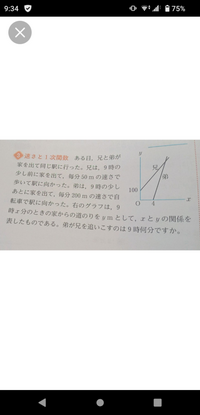 9:34
75%
速さと1次関数 ある日，兄と弟が
家を出て同じ駅に行った。兄は，9時の
少し前に家を出て，毎分50mの速さで
歩いて駅に向かった。弟は，9時の少し
あとに家を出て，毎分200mの速さで自
転車で駅に向かった。右のグラフは，9
時x分のときの家からの道のりをymとして，xとyの関係を
表したものである。弟が兄を追いこすのは9時何分ですか。
y
兄
弟
100
O
x